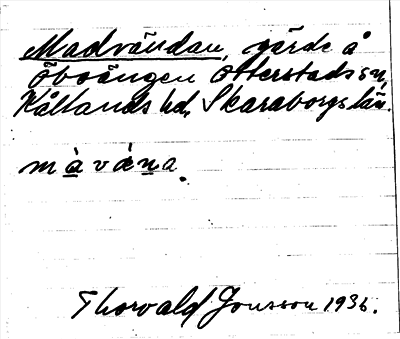 Madvändan, gärde å
Öboängen Otterstads sn,
Kållands hd, Skaraborgs län.
màvána.
Thorvald Jonsson 1936.